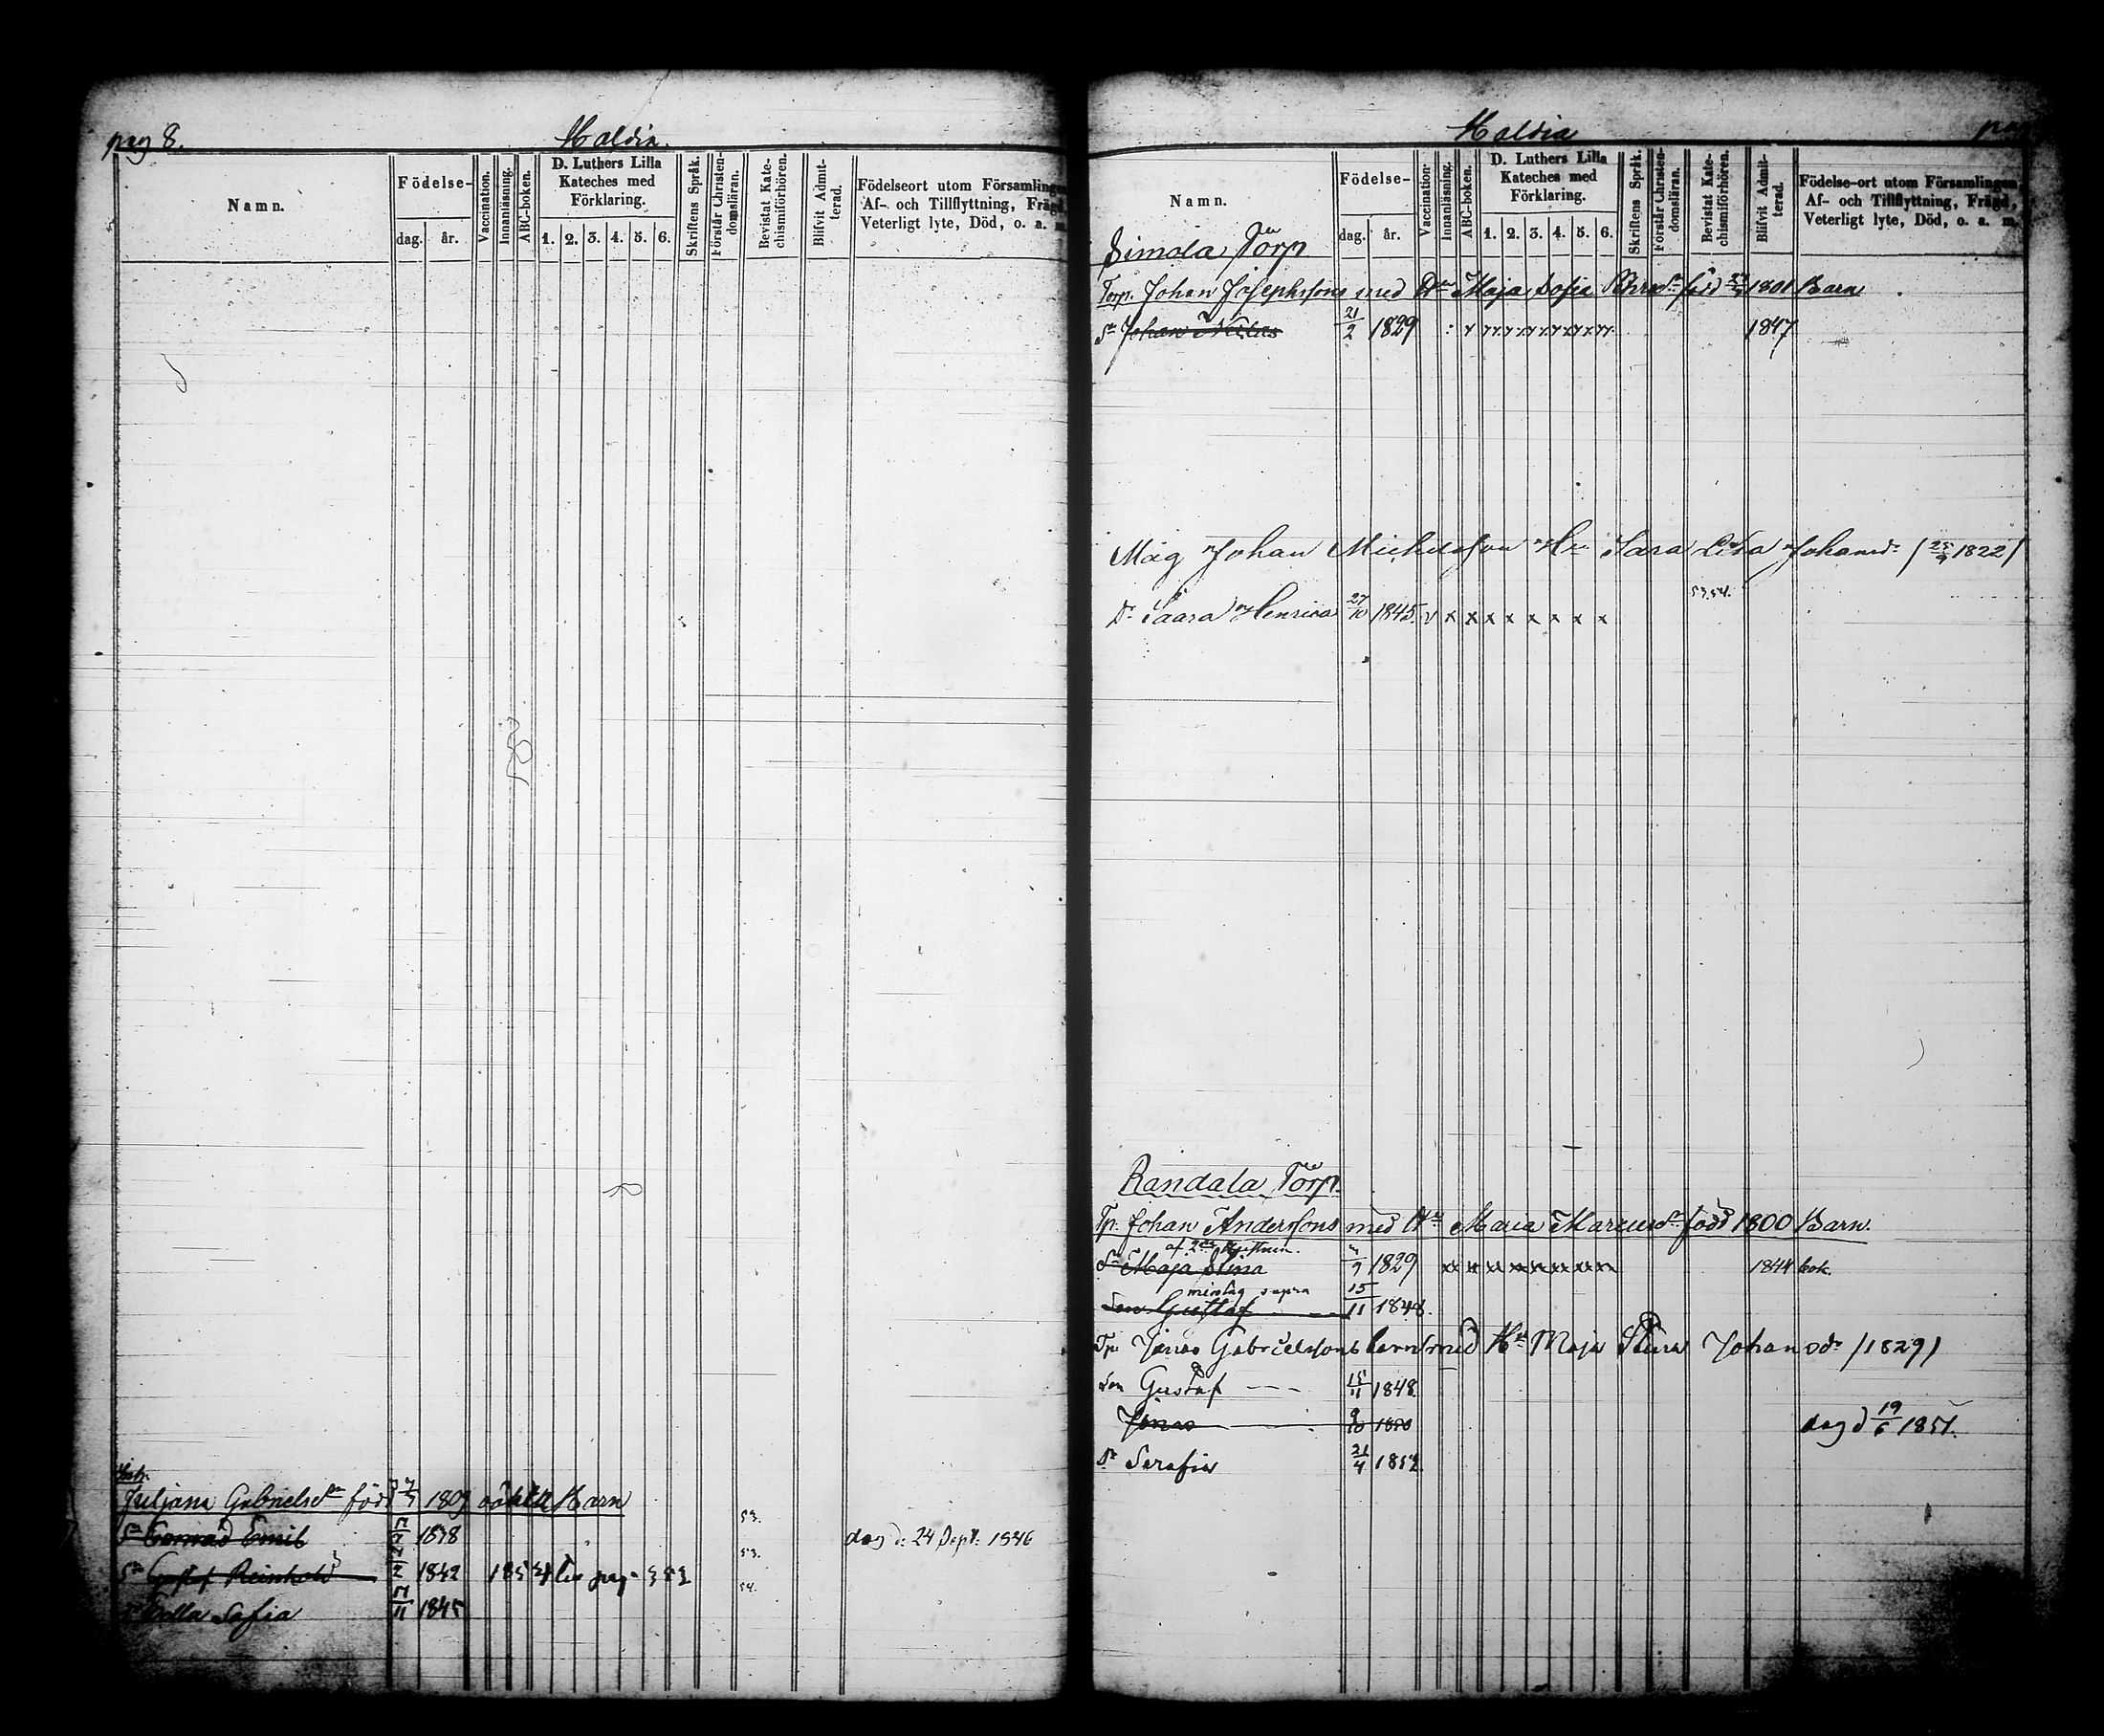 pag 8.
Haldia.
Namn.
Födelse-
dag. år.
Vaccination.
Innanläsning.
ABC-boken.
D. Luthers Lilla
Kateches med
Förklaring.
1. 2. 3. 4. 5. 6.
Skriftens Språk.
Förstår Christen-
domsläran.
Bevistat Kate-
chismiförhören.
Blifvit Admit-
terad.
Födelseort utom Församlingen
Af- och Tillflyttning, Frägd,
Veterligt lyte, Död, o. a. m.
Juliana Gabrielsdr född 1809 oäkta Barn
Sn Conrad Emil 1838 53. dog d: 24 Sept: 1846
Sn Gustaf Reinhold 1842 1854 53.
Dr Ulla Sofia 11 1845 54.
Haldia
Namn.
Födelse-
dag. år.
Vaccination.
Innanläsning.
ABC-boken.
D. Luthers Lilla
Kateches med
Förklaring.
1. 2. 3. 4. 5. 6.
Skriftens Språk.
Förstår Christen-
domsläran.
Bevistat Kate-
chismiförhören.
Blifvit Admit-
terad.
Födelse-ort utom Församlingen,
Af- och Tillflyttning, Frägd,
Veterligt lyte, Död, o. a. m.
Simola Torp
Torp. Johan Josephssons med Hu Maja Sofia född 1801 Barn
Sn Johan 21/2 1829 1847
Måg Johan Michelsson Hu Sara Lisa Johansdr /25/9 1822/
53.54.
Dr Saara Henrica 27/10 1845 v x x x x x x x x
Randala Torp.
Tp. Johan Anderssons med Hu Maria Marcusdr född 1800 Barn.
af 2dra giftum.
Dr Maja Stina 9 1829 1844
supra
Son Gustaf 15/11 1848.
Tp: Jonas Gabrielssons barn med Hu Maja Stina Johansdr /1829/
Son Gustaf 15/11 1848
Jonas 9/10 1850 dog d 19/6 1851.
Dr Serafia 21/4 1852